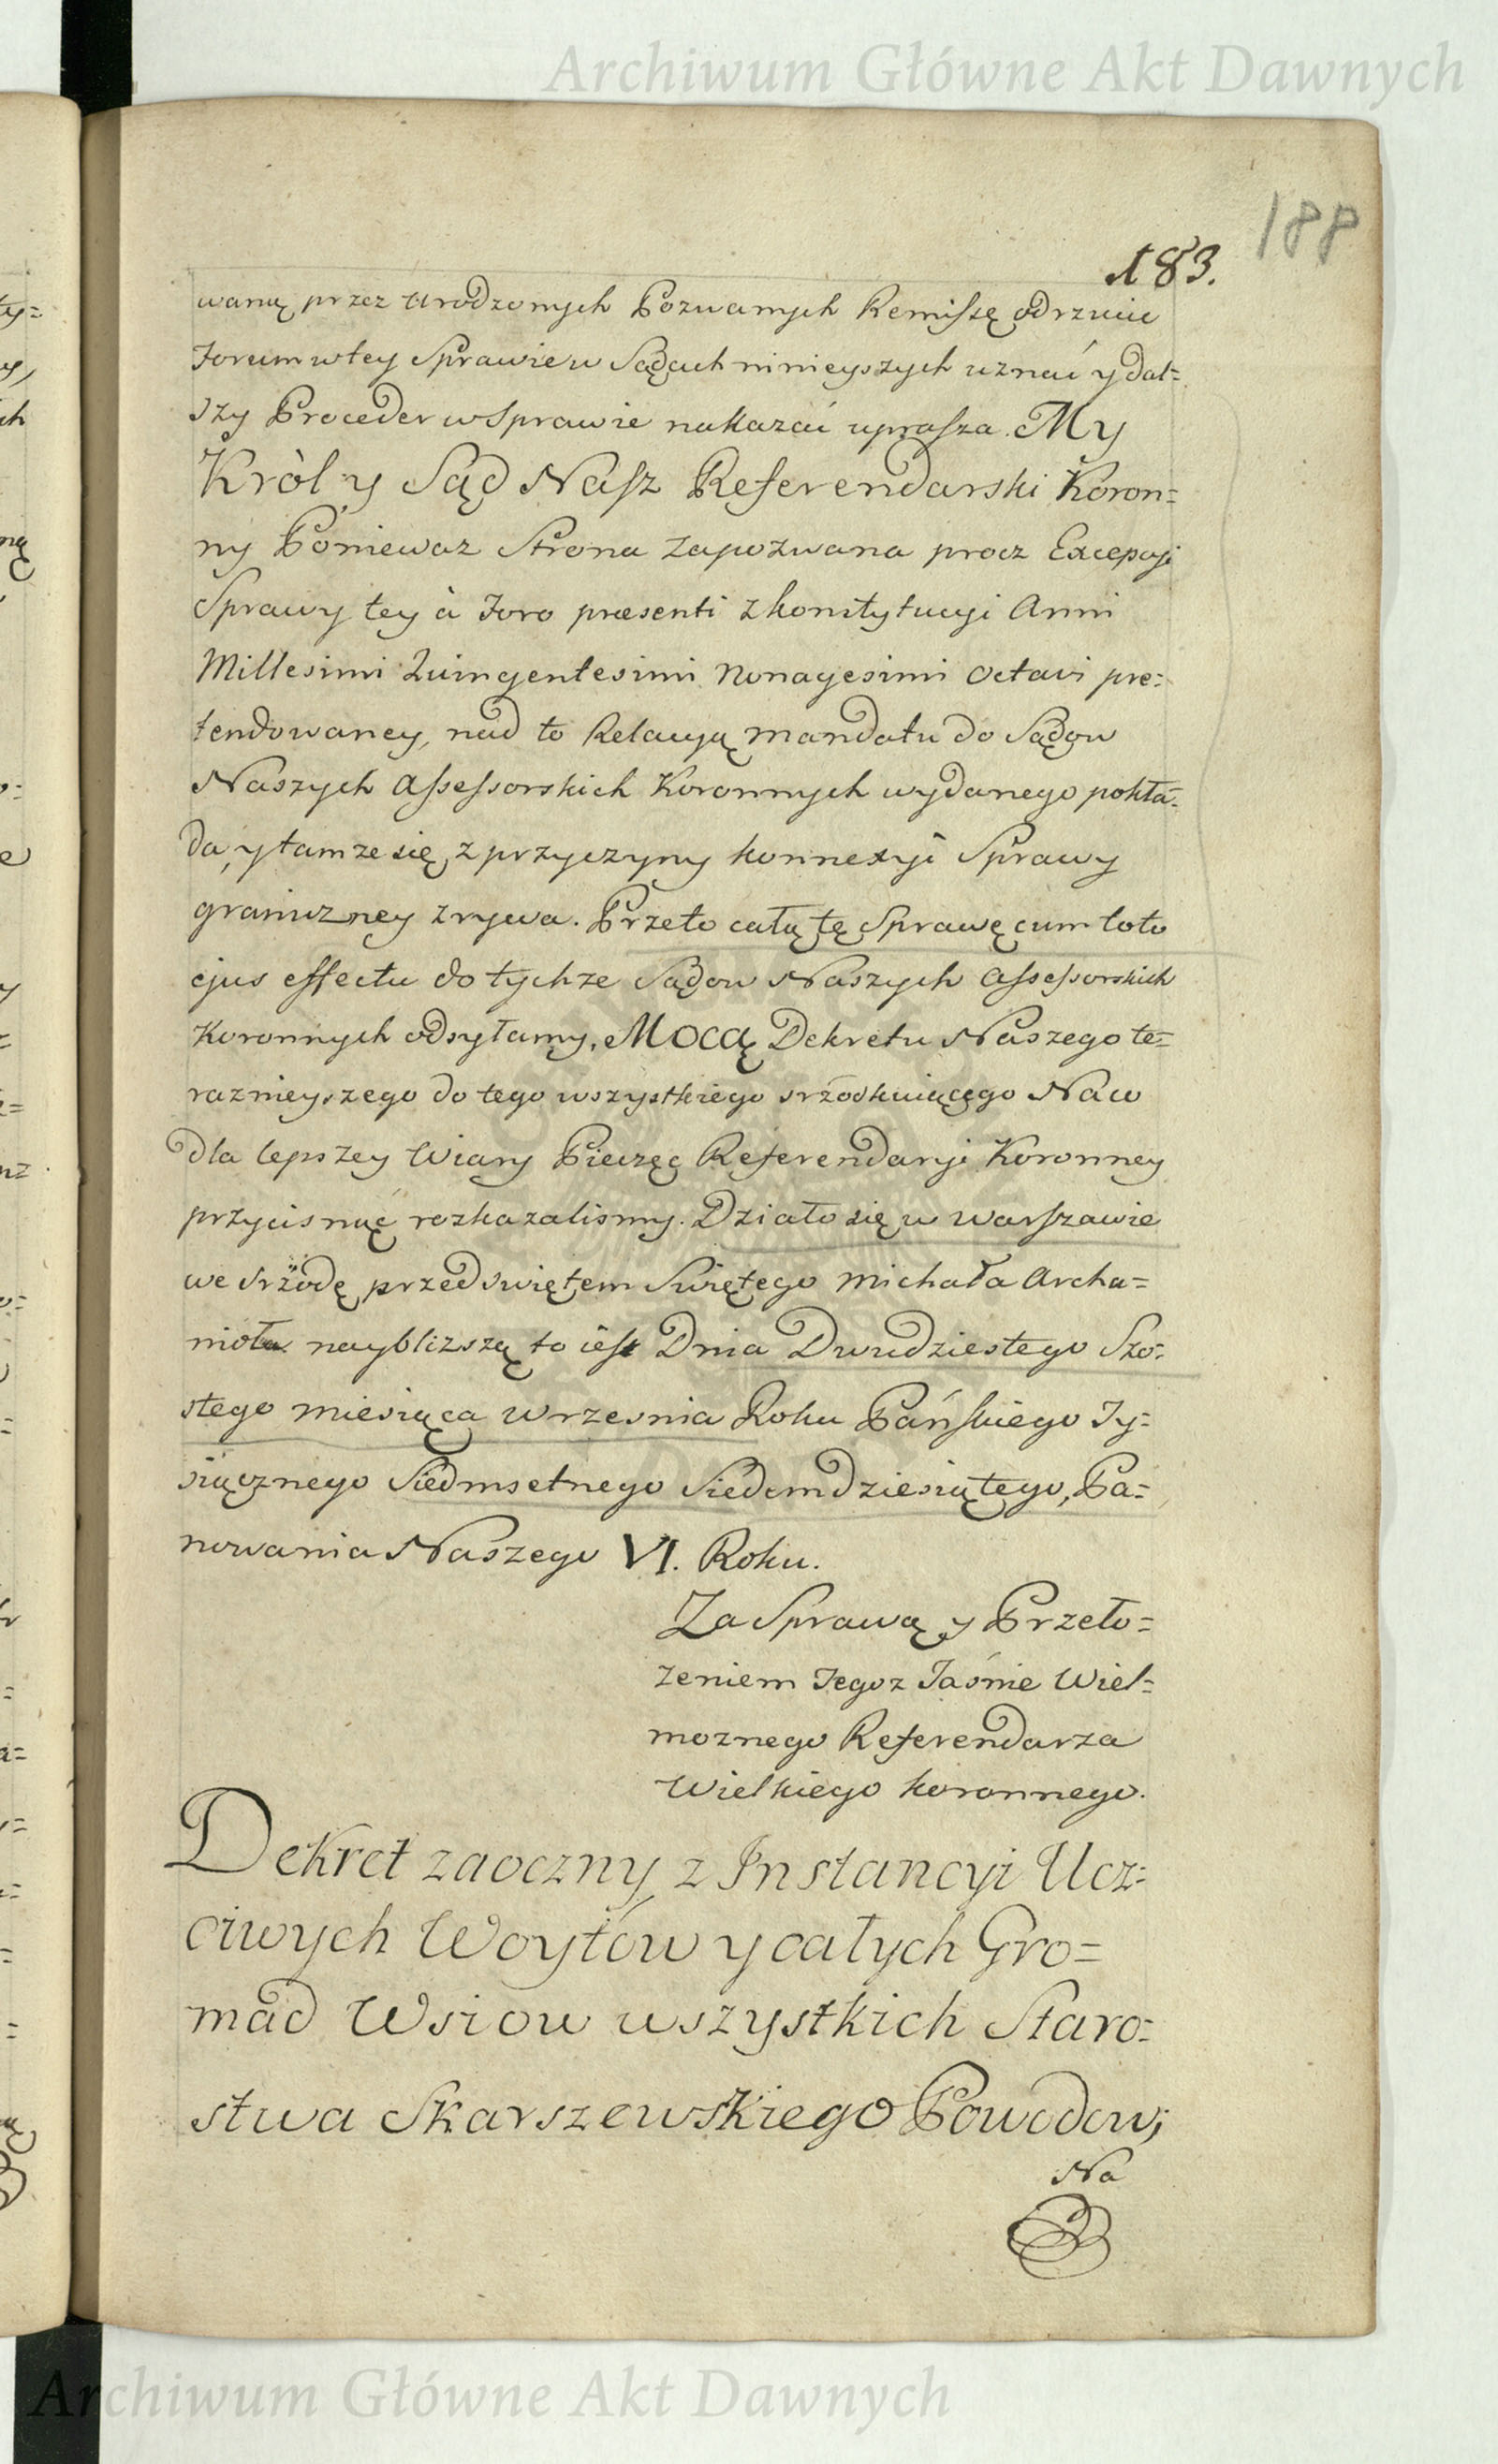 Archiwum Główne Akt Dawnych
188
183.
waną przez Urodzonych Pozwanych Remissę odrzucić
Forum wtey Sprawie w Sądach ninieyszych uznać y dal=
szy Proceder w Sprawie nakazać uprasza. My
Król y Sąd Nasz Referendarski Koron=
ny Poniewaz Strona Zapozwana procz Excepcyi
Sprawy tey à Foro præsenti z konstytucyi Anni
Millesimi Quingentesimi Nonagesimi Octavi pre=
tendowaney, nad to Relacyą mandatu do Sądow
Naszych Assessorskich Koronnych wydanego pokła=
da, y tamze się z przyczyny konnexyi Sprawy
graniczney zrywa. Przeto całą tę Sprawę cum toto
ejus effectu do tychze Sądow Naszych Assessorskich
Koronnych odsyłamy, Mocą Dekretu Naszego te=
raznieyszego do tego wszystkiego srzodkuiącego Na co
dla lepszey Wiary Pieczęc Referendaryi Koronney
przycisnąć rozkazalismy. Działo się w Warszawie
we Srzodę przed Swiętem Swiętego Michała Archa=
nioła naybliższą to iest Dnia Dwudziestego Szo=
stego miesiąca Wrzesnia Roku Pańskiego Ty=
siącznego Siedmsetnego Siedemdziesiątego, Pa=
nowania Naszego VI. Roku.
Za Sprawą y Przeło=
zeniem Tegoz Jaśnie Wiel=
moznego Referendarza
Wielkiego Koronnego.
Dekret zaoczny z Instancyi Ucz=
ciwych Woytów y całych Gro=
mad Wsiow wszystkich Staro=
stwa Skarszewskiego Powodow;
Na
Archiwum Główne Akt Dawnych